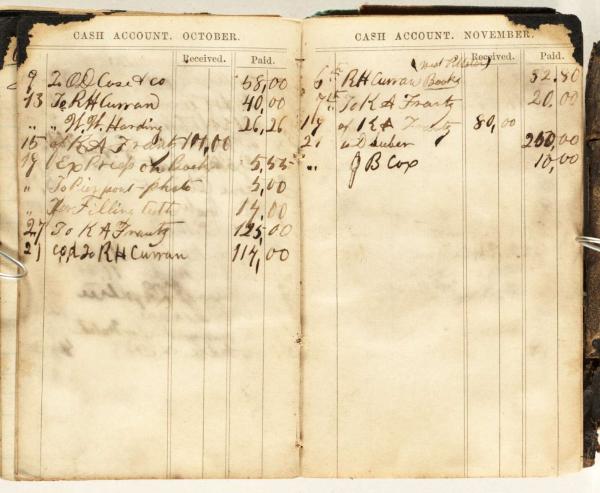 CASH ACCOUNT. OCTOBER.
Received. Paid.
9 To O D Case & Co 58,00
13 To R H Curran 40,00
" " W. W. Harding 26,26
15 of K A Frantz 101,00
18 Ex Press on Books 5,85
" To Pierpont - photo 5,00
" For Filling teeth 14,00
27 To K A Frantz 125,00
21 To R H Curran 114,00
CASH ACCOUNT. NOVEMBER.
Received. Paid.
6th R H Curran Books 52.80
7th To K A Frantz 20.00
19 of K A Frantz 80,00
21 250,00
" J B Cox 10,00